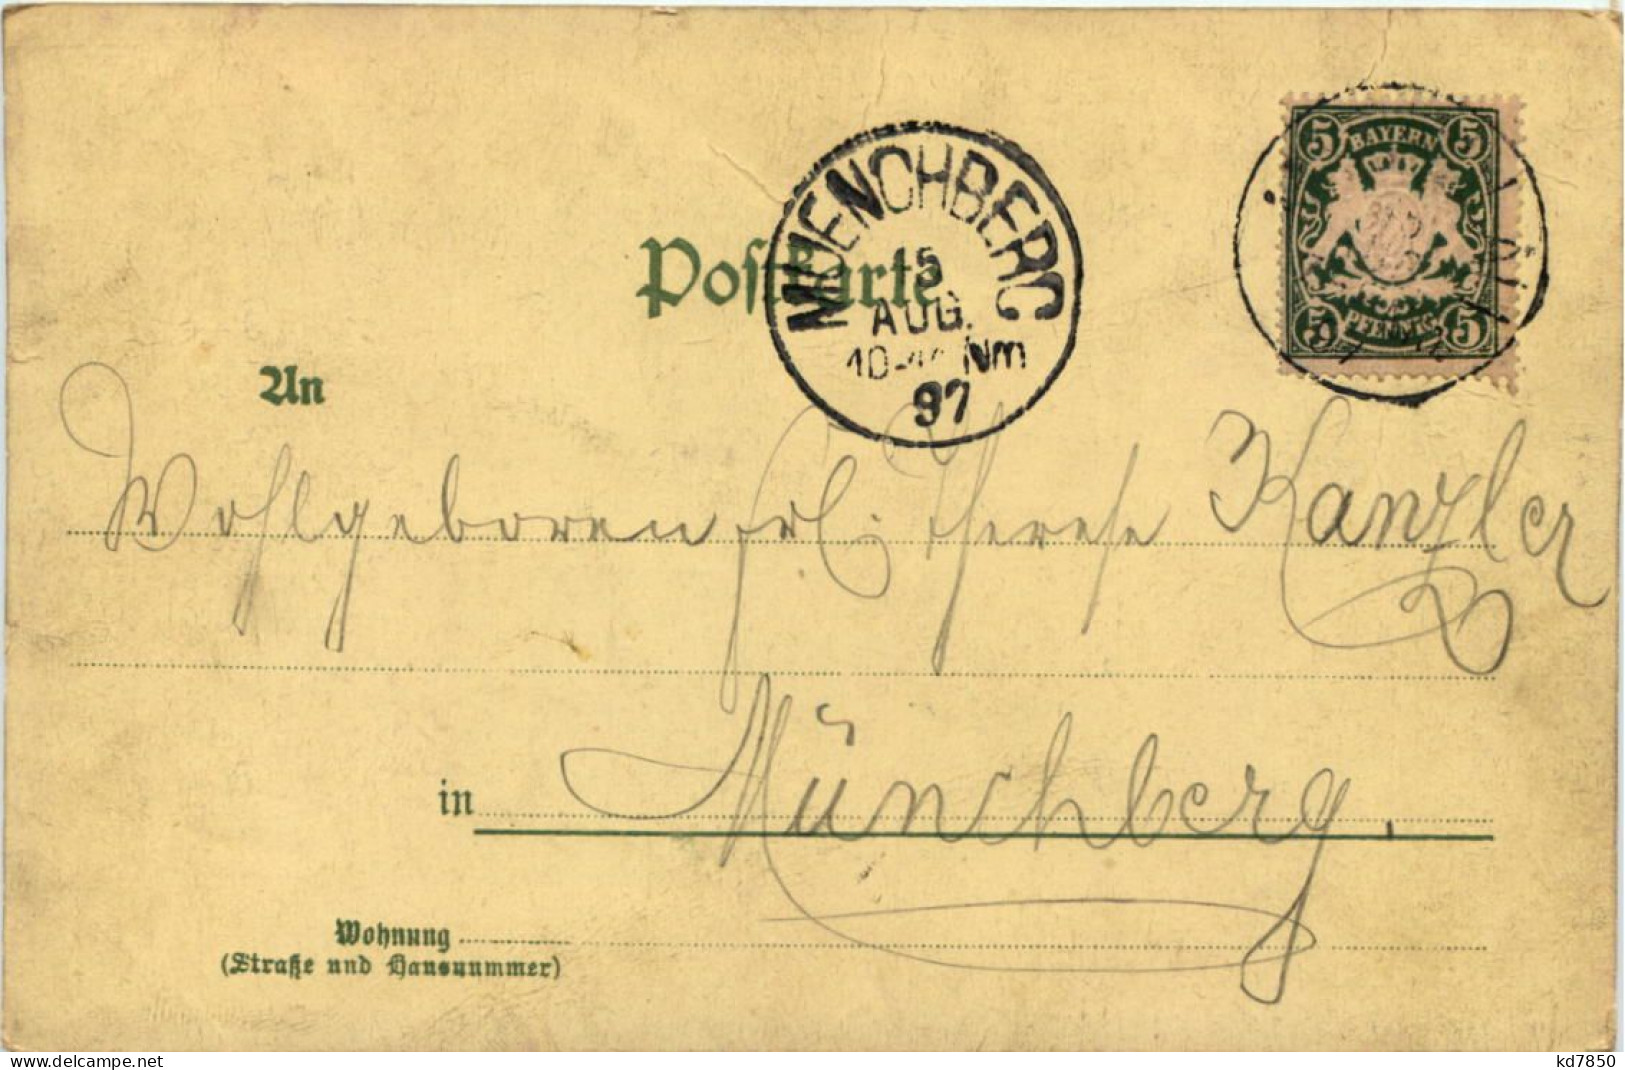 5 BAYERN 5
5 PFENNIG 5
MUENCHBERG
15
AUG.
Nm
97
Postkarte
An
Wohlgeboren Frl. Therese Kanzler
in Münchberg.
Wohnung
(Straße und Hausnummer)
delcampe.net
kd7850